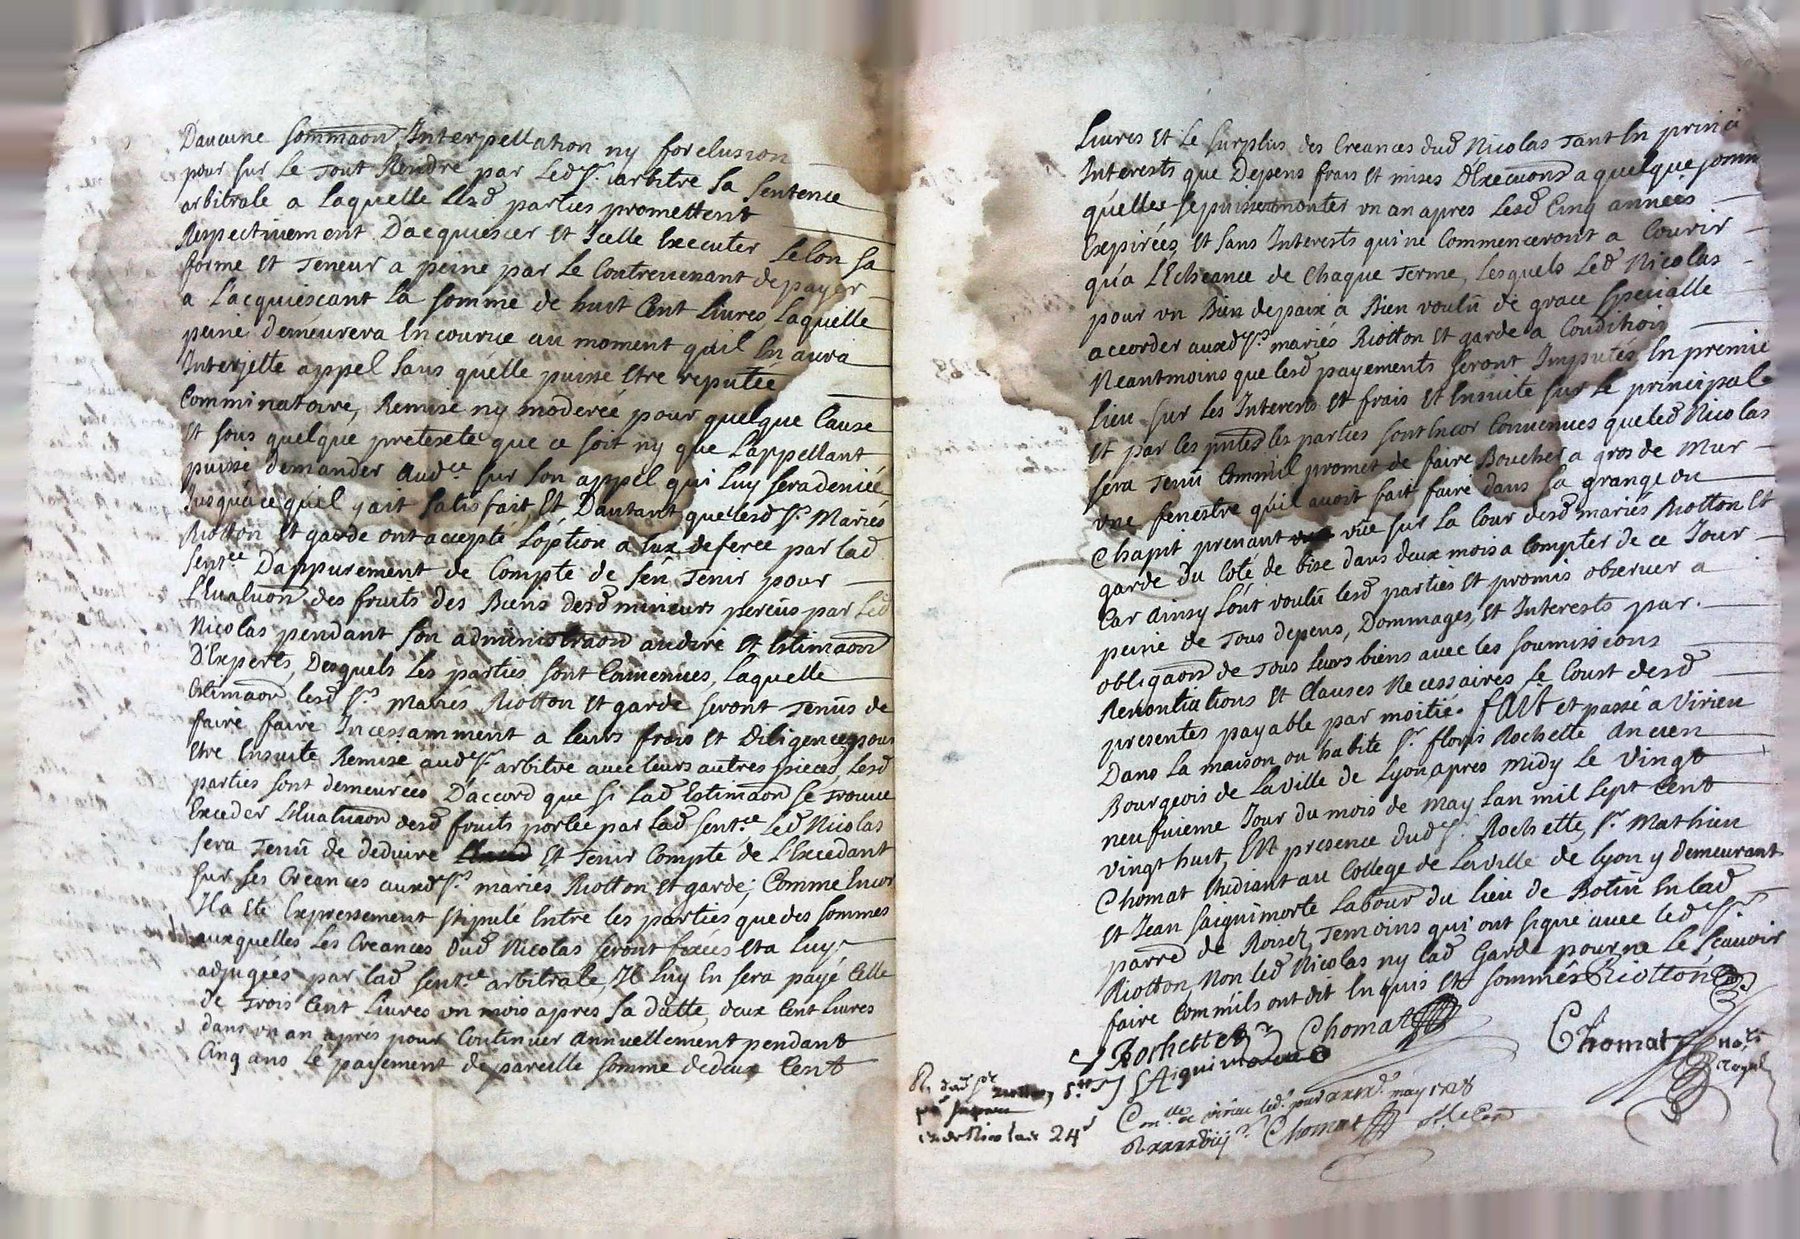 Daucune sommaon, Interpellation ny forclusion
pour sur le tout Rendre par Led Sr. arbitre sa sentence
arbitrale a laquelle lesd parties promettent
Respectivement D'acquiescer et Icelle Executer selon sa
forme et teneur a peine par le Contrevenant de payer
a l'acquiescant la somme de huit Cent Livres, laquelle
peine demeurera Encourue au moment quil En aura
Interjetté appel sans quelle puisse Etre reputée
Comminatoire, Remise ny moderée pour quelque Cause
et sous quelque pretexte que ce soit ny que l'appellant
puisse demander audce. sur son appel qui luy sera deniée
Jusqu'a ce quil y ait satisfait, Et Dautant que lesd Srs. Mariés
Riotton et garde ont accepté l'option a Eux deferée par lad
sentce. D'appurement de Compte de s'en tenir pour
l'Evaluaon des fruits des Biens desd mineurs perceus par Led
Nicolas pendant son administraon au dire et Estimaon
D'Experts, Desquels les parties sont Convenues, laquelle
Estimaon lesd Srs. mariés Riotton et garde seront tenüs de
faire faire Incessamment a leurs frais et Diligences pour
Etre Ensuite Remise aud Sr. arbitre avec leurs autres pieces, lesd
parties sont demeurées D'accord que si lad Estimaon se trouve
Exceder l'Evaluaon desd fruits portée par lad sentce. Led Nicolas
sera tenü de deduire et tenir Compte de l'Excedant
sur ses Creances auxd Srs. mariés Riotton et garde; Comme Encor
Il a Eté Expressement stipulé Entre les parties que des sommes
auxquelles les Creances dud Nicolas seront fixées et a luy
adjugées par lad sentce. arbitrale, Il luy En sera payé Celle
de trois Cent Livres un mois apres sa datte, deux Cent livres
dans un an aprés pour Continuer annuellement pendant
Cinq ans le payement de pareille somme de deux Cent
Livres et le surplus des Creances dud Nicolas tant En princi
Interests que Depens frais et mises D'Execuons a quelque somm
qu'elles se puissent monter un an apres lesd Cinq années
Expirées et sans Interests qui ne Commenceront a Courir
qu'a l'Echeance de Chaque terme, lesquels Led Nicolas
pour un Bien de paix a Bien voulü de grace specialle
accorder auxd Srs. mariés Riotton et garde a Condition
Neantmoins que lesd payements seront Imputés En premie
lieu sur les Interests et frais et Ensuite sur le principale
et par ces pntes les parties sont Encor Convenues que led Nicolas
sera tenü Comm'il promet de faire Boucher a gros de Mur
une fenestre qu'il avoit fait faire dans sa grange ou
Chapit prenant vüe sur la Cour desd mariés Riotton et
garde du Coté de bise dans deux mois a Compter de ce Jour
Car Ainsy l'ont voulü lesd parties et promis observer a
peine de tous depens, Dommages, et Interests par
obligaon de tous leurs biens avec les soumissions
Renontiations et Clauses Necessaires le Coust desd
presentes payable par moitié. FAIT et passé a Virieu
Dans la maison ou habite Sr. floris Rochette Ancien
Bourgeois de La ville de Lyon apres midy le vingt
neufvieme Jour du mois de May l'an mil sept Cent
vingt huit, En presence dud Sr. Rochette, Sr. Mathieu
Chomat Etudiant au College de La ville de Lyon y demeurant
et Jean saiguimorte Labour du lieu de Botin En lad
parre de Roisez, temoins qui ont signé avec led Sr.
Riotton, Non led Nicolas ny lad Garde pour ne le scavoir
faire Comm'ils ont dit Enquis et sommés Riotton
Rochette Chomat
Chomat
no.re
Royal
Saiguimorte
24
may 1728
Chomat